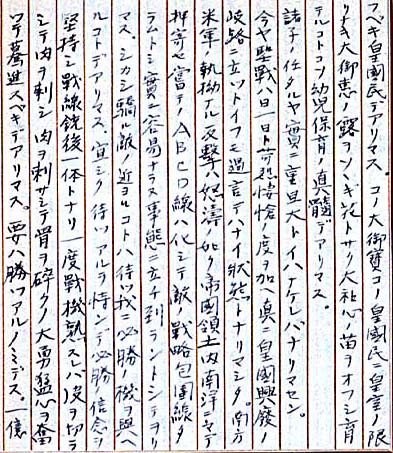 フベキ皇國民デアリマス。コノ大御寶コノ皇國民ニ皇室ノ限
リナキ大御恵ノ露ヲソソギ花トサク大和心ノ苗ヲオフシ育
テルコトコソ幼兒保育ノ眞髓デアリマス。
諸子ノ任タルヤ實ニ重且大トイハナケレバナリマセン。
今ヤ聖戰ハ日一日ト苛烈悽愴ノ度ヲ加ヘ眞ニ皇國興廢ノ
岐路ニ立ツトイフモ過言デハナイ狀態トナリマシタ。南方
米軍ノ執拗ナル反擊ハ怒濤ノ如ク帝國領土内南洋ニマデ
押寄セ嘗テノABCD線ハ化シテ敵ノ戰略包圍線タ
ラムトシ實ニ容易ナラヌ事態ニ立チ到ラントシテヲリ
マス。シカシ驕敵ノ近ヨルコトハ待ツ我ニ必勝ノ機ヲ與ヘ
ルコトデアリマス。宜シク待ツアルヲ恃ンデ必勝ノ信念ヲ
堅持シ戰線銃後一体トナリ一度戰機熟スレバ皮ヲ切ラ
シテ肉ヲ刺シ肉ヲ刺サシテ骨ヲ碎クノ大勇猛心ヲ奮
ツテ驀進スベキデアリマス。要ハ勝ツアルノミデス。一億